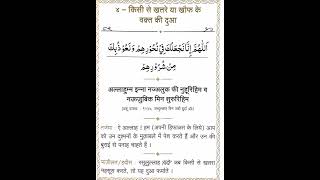 ४ – किसी से ख़तरे या ख़ौफ के
वक्त की दुआ
اَللّٰهُمَّ اِنَّا نَجْعَلُكَ فِيْ نُحُوْرِهِمْ وَنَعُوْذُ بِكَ
مِنْ شُرُوْرِهِمْ
अल्लाहुम्म इन्ना नज्अलुक फी नुहूरिहिम व
नऊज़ुबिक मिन शुरूरिहिम
तर्जमा : ऐ अल्लाह ! हम (अपनी हिफाज़त के लिये) आप
को उन दुश्मनों के मुक़ाबले में पेश करते हैं और उन की
बुराई से पनाह चाहते हैं ।
रसूलुल्लाह ﷺ जब किसी से ख़तरा
महसूस करते, तो यह दुआ फर्माते ।